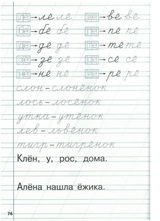 ле ле ве ве
бе бе пе пе
де де те те
зе зе се се
не не ре ре
слон - слонёнок
лось - лосёнок
утка - утёнок
лев - львёнок
тигр - тигрёнок
Клён, у, рос, дома.
Алёна нашла ёжика.
76